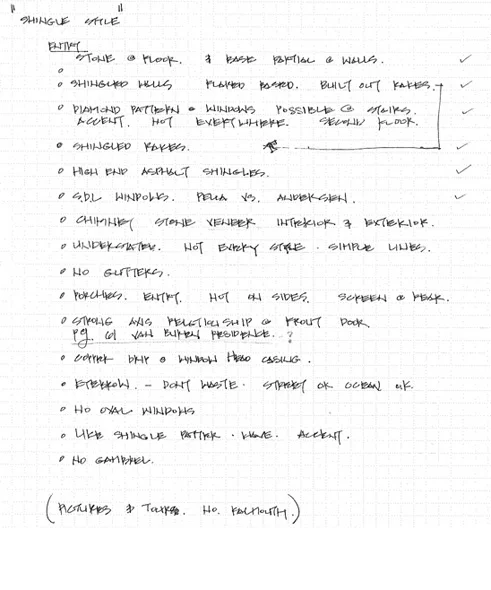 "SHINGLE STYLE"
ENTRY
STONE @ FLOOR. & BASE PARTIAL @ WALLS.
SHINGLED WALLS FLARED BASED. BUILT OUT RAKES.
DIAMOND PATTERN @ WINDOWS POSSIBLE @ STAIRS.
ACCENT. NOT EVERYWHERE. SECOND FLOOR.
SHINGLED RAKES.
HIGH END ASPHALT SHINGLES.
S.D.L WINDOWS. PELLA VS. ANDERSEN.
CHIMNEY STONE VENEER INTERIOR & EXTERIOR.
UNDERSTATED. NOT EVERY STYLE. SIMPLE LINES.
NO GUTTERS.
PORCHES. ENTRY. NOT ON SIDES. SCREEN @ REAR.
STRONG AXIS RELATIONSHIP @ FRONT DOOR.
PG. 61 VAN BUREN RESIDENCE. ?
COPPER DRIP @ WINDOW HEAD CASING.
EYEBROW. - DONT WASTE. STREET OR OCEAN OK.
NO OVAL WINDOWS
LIKE SHINGLE PATTER. WAVE. ACCENT.
NO GAMBREL.
(PICTURES & TOURS. NO. FALMOUTH.)